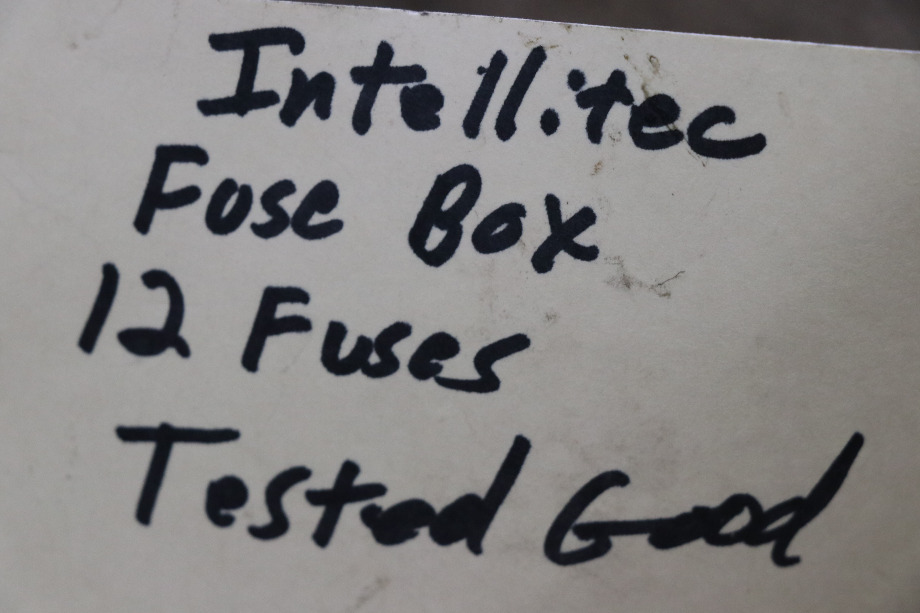 Intellitec
Fuse Box
12 Fuses
Tested Good